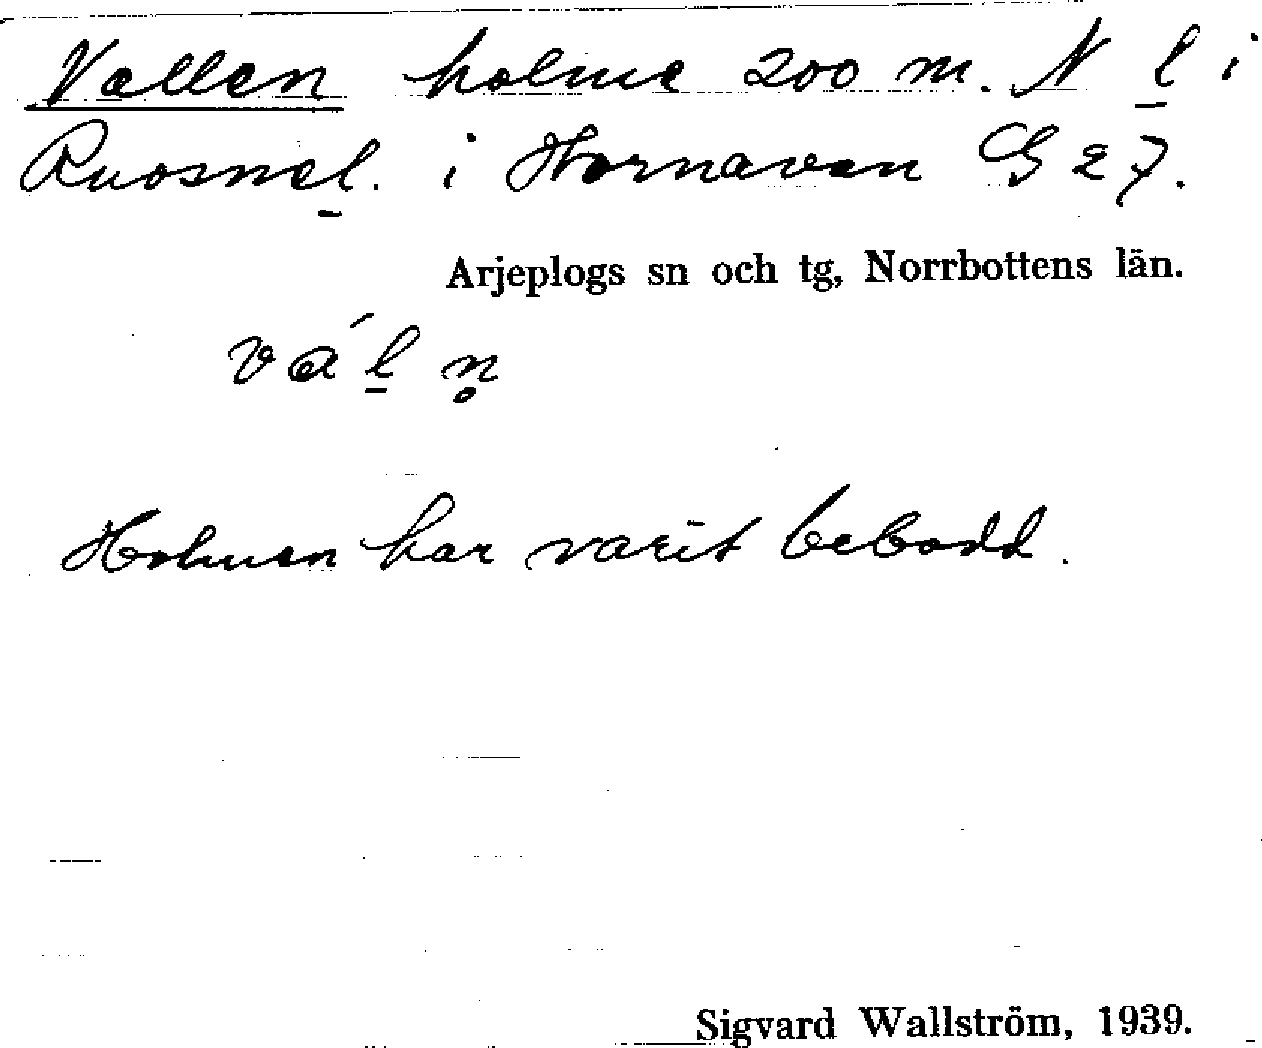 Vallen holme 200 m. N l̲ i
Ruosnel̲. i Hornavan G 27.
Arjeplogs sn och tg, Norrbottens län.
vá l̲ n̥
Holmen har varit bebodd.
Sigvard Wallström, 1939.